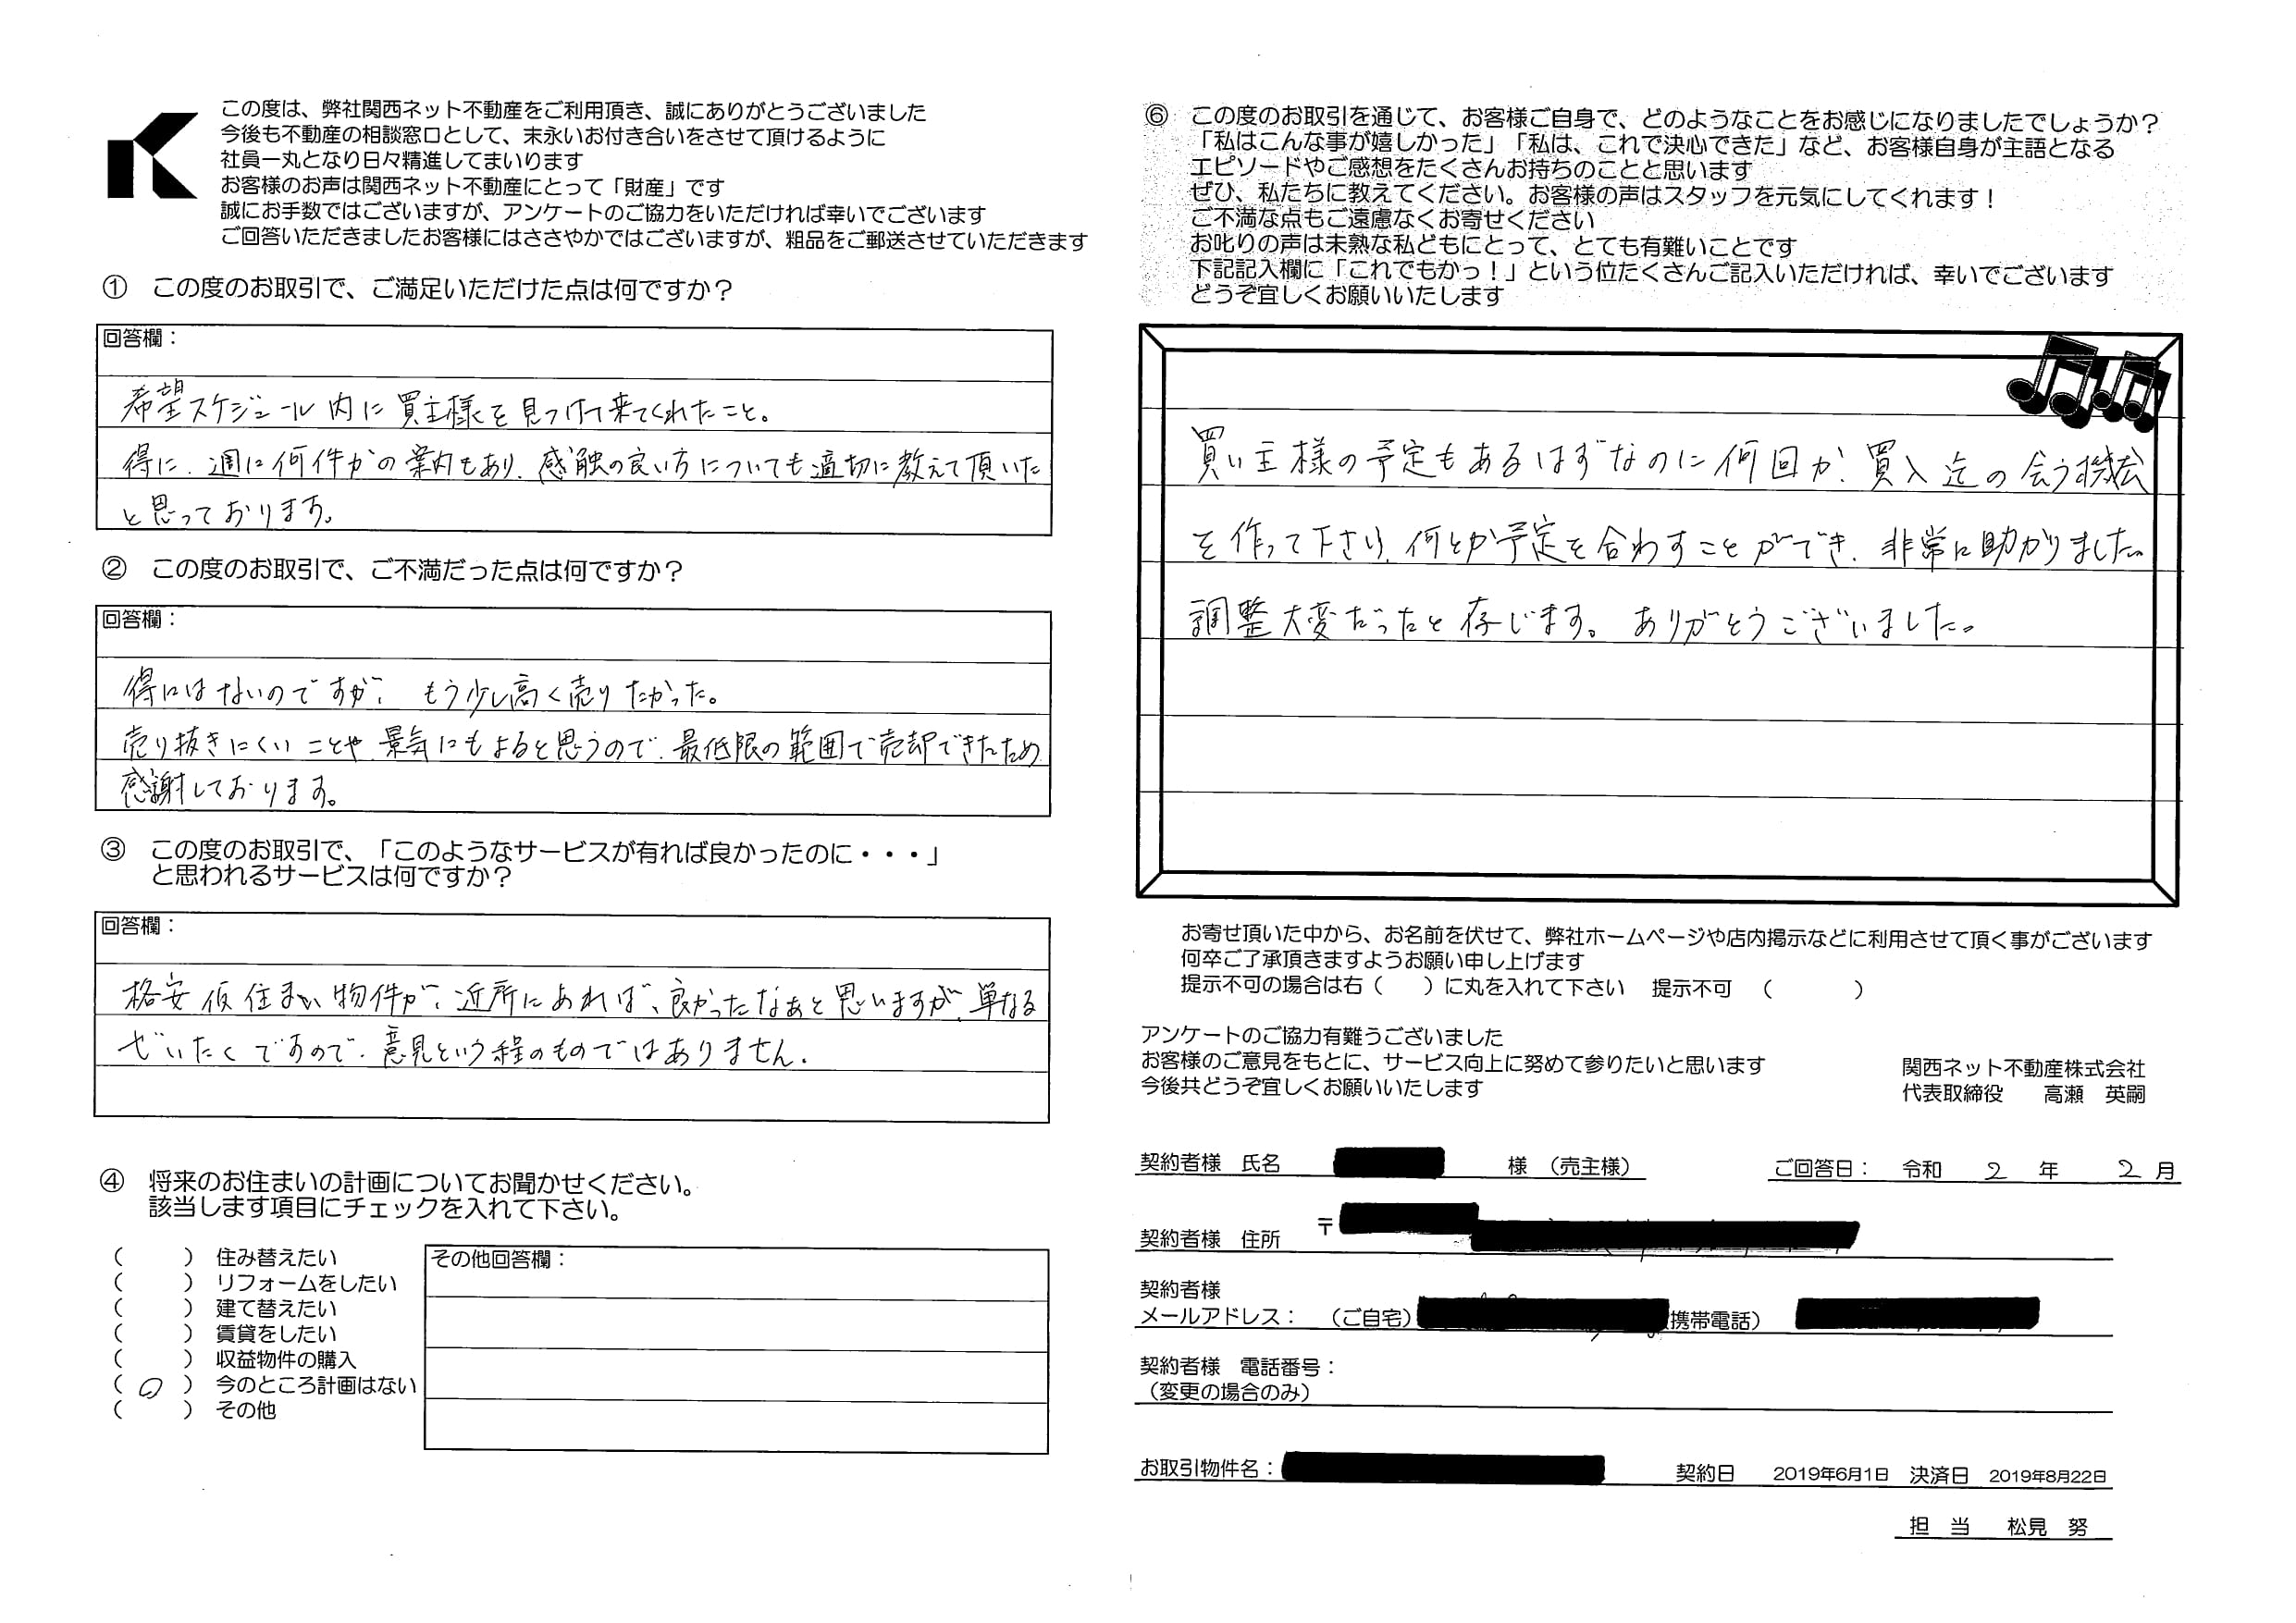 この度は、弊社関西ネット不動産をご利用頂き、誠にありがとうございました
今後も不動産の相談窓口として、末永いお付き合いをさせて頂けるように
社員一丸となり日々精進してまいります
お客様のお声は関西ネット不動産にとって「財産」です
誠にお手数ではございますが、アンケートのご協力をいただければ幸いでございます
ご回答いただきましたお客様にはささやかではございますが、粗品をご郵送させていただきます
① この度のお取引で、ご満足いただけた点は何ですか？
回答欄：
希望スケジュール内に買主様を見つけて来てくれたこと。
得に、週に何件かの案内もあり、感触の良い方についても適切に教えて頂いた
と思っております。
② この度のお取引で、ご不満だった点は何ですか？
回答欄：
得にはないのですが、もう少し高く売りたかった。
売り抜きにくいことや景気にもよると思うので、最低限の範囲で売却できたため
感謝しております。
③ この度のお取引で、「このようなサービスが有れば良かったのに・・・」
と思われるサービスは何ですか？
回答欄：
格安仮住まい物件が、近所にあれば、良かったなぁと思いますが、単なる
ぜいたくですので、意見という程のものではありません。
④ 将来のお住まいの計画についてお聞かせください。
該当します項目にチェックを入れて下さい。
（　　）住み替えたい
（　　）リフォームをしたい
（　　）建て替えたい
（　　）賃貸をしたい
（　　）収益物件の購入
（ ○ ）今のところ計画はない
（　　）その他
その他回答欄：
⑥ この度のお取引を通じて、お客様ご自身で、どのようなことをお感じになりましたでしょうか？
「私はこんな事が嬉しかった」「私は、これで決心できた」など、お客様自身が主語となる
エピソードやご感想をたくさんお持ちのことと思います
ぜひ、私たちに教えてください。お客様の声はスタッフを元気にしてくれます！
ご不満な点もご遠慮なくお寄せください
お叱りの声は未熟な私どもにとって、とても有難いことです
下記記入欄に「これでもかっ！」という位たくさんご記入いただければ、幸いでございます
どうぞ宜しくお願いいたします
買い主様の予定もあるはずなのに何回か、買入迄の会う機会
を作って下さり、何とか予定を合わすことができ、非常に助かりました。
調整大変だったと存じます。ありがとうございました。
お寄せ頂いた中から、お名前を伏せて、弊社ホームページや店内掲示などに利用させて頂く事がございます
何卒ご了承頂きますようお願い申し上げます
提示不可の場合は右（　）に丸を入れて下さい　提示不可　（　　　）
アンケートのご協力有難うございました
お客様のご意見をもとに、サービス向上に努めて参りたいと思います
今後共どうぞ宜しくお願いいたします
関西ネット不動産株式会社
代表取締役　高瀬　英嗣
契約者様　氏名　様　（売主様）　ご回答日：　令和　2　年　2　月
契約者様　住所　〒
契約者様
メールアドレス：　（ご自宅）　携帯電話）
契約者様　電話番号：
（変更の場合のみ）
お取引物件名：　契約日　2019年6月1日　決済日　2019年8月22日
担　当　松見　努